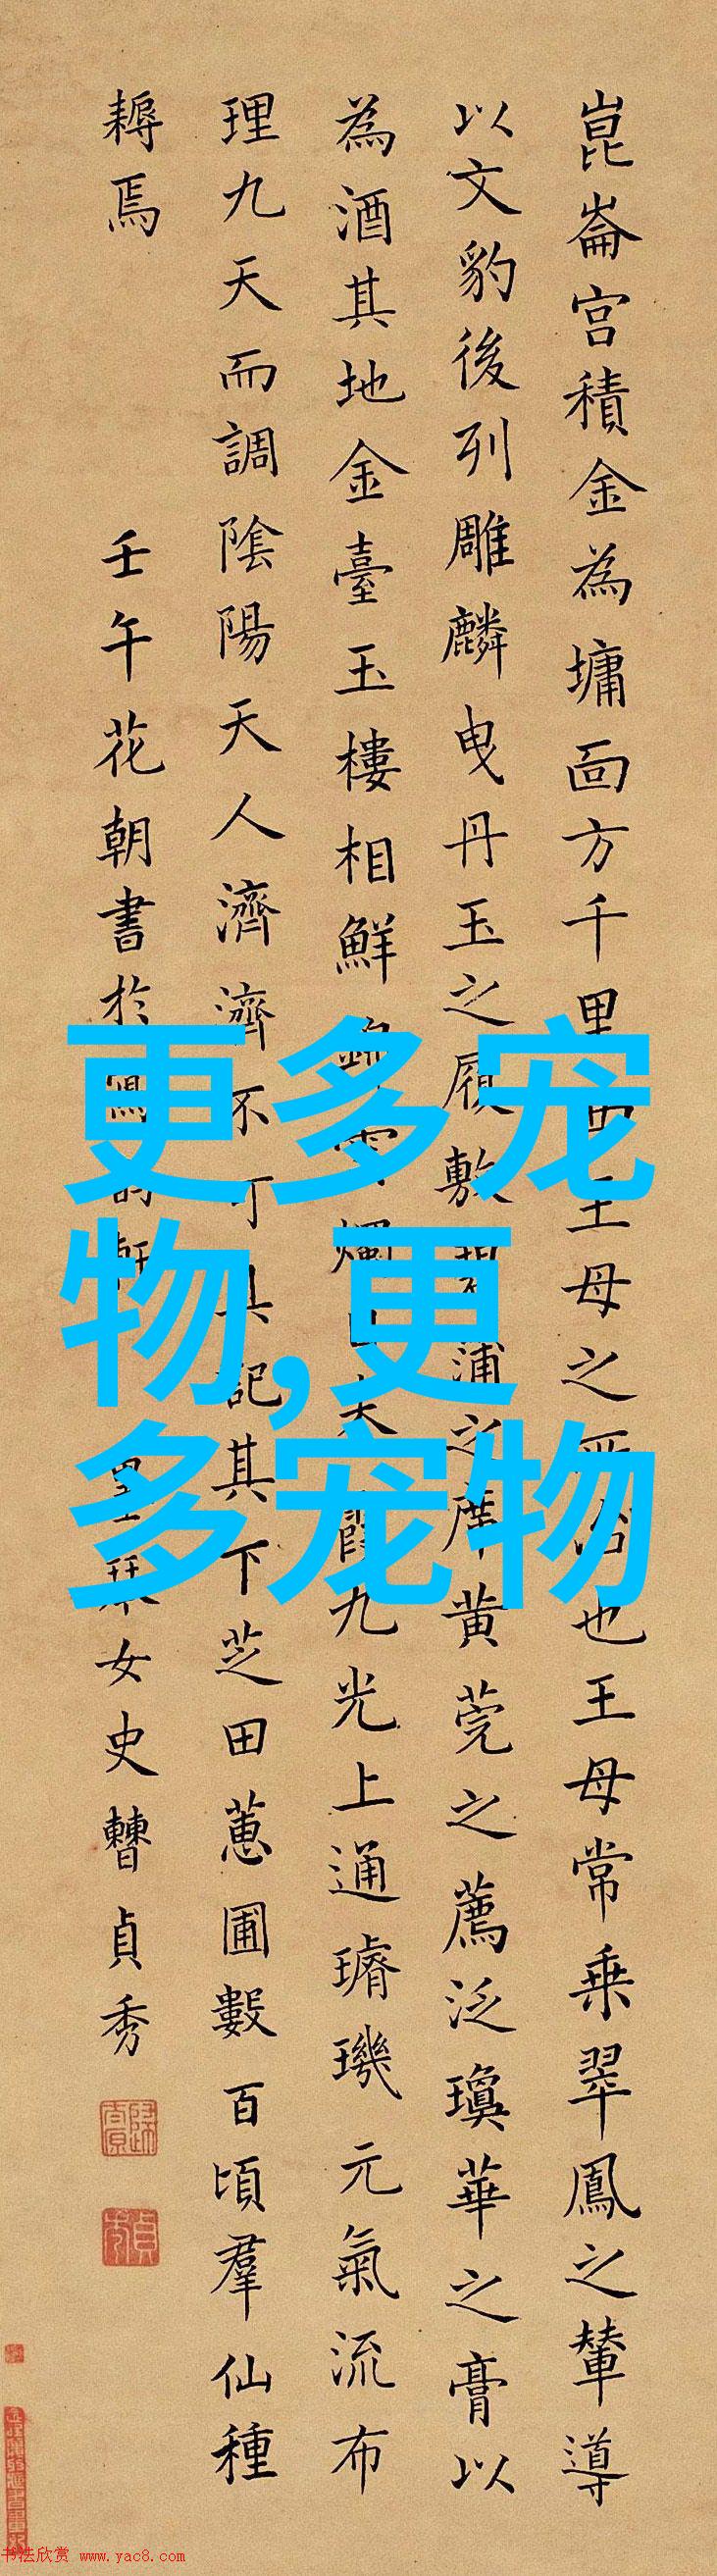 崑崙宮積金為墉面方千里
王母之
也王母常乗翠鳳之輦導
以文豹後列雕麟曳丹玉之履敷
蒲之席黄莞之薦泛瓊華之膏以
為酒其地金臺玉樓相鮮
霞九光上通璿璣元氣流布
理九天而調陰陽天人濟濟不可具記其下芝田蕙圃數百頃羣仙種
耨焉
壬午花朝書於寫韵軒
琴女史曹貞秀
更多宠
物,更
多宠物
书法欣赏 www.yac8.com